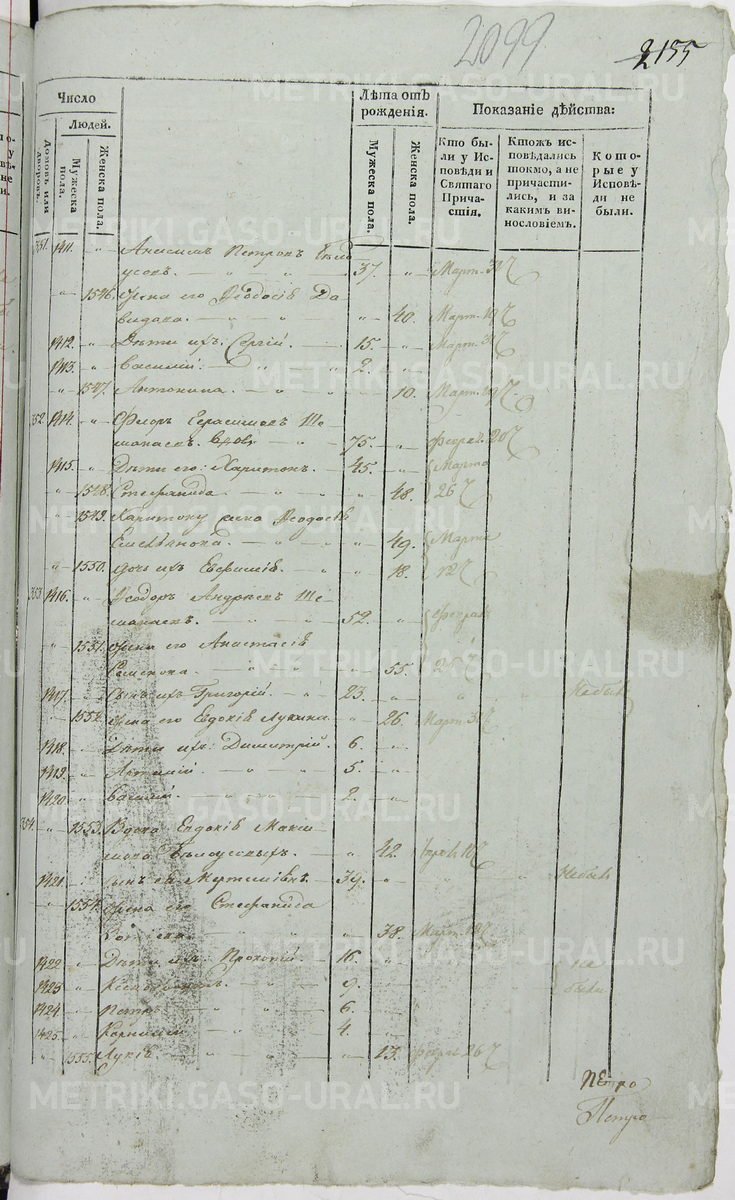 2099
2155
Число
Людей.
Домовъ или дворовъ.
Мужеска пола.
Женска пола.
Лѣта отъ рожденія.
Мужеска пола.
Женска пола.
Показаніе дѣйства:
Кто были у Исповѣди и Святаго Причастія.
Ктожъ исповѣдались токмо, а не причастились, и за какимъ винословіемъ.
Которые у Исповѣди не были.
351. 1411. " Анисимъ Петровъ
37. " Март. 30
" 1546. жена его Ѳеодосія Да
видова. " 40. Март. 19
1412. " Дѣти ихъ: Сергій. 15. " Март. 30
1413. " Василій: 2. "
" 1547. Антонина. " 10. Март. 19
352. 1414. " Ѳедоръ Герасимовъ Ше
манаевъ. вдовъ 75. " Феврал. 20
1415. " Дѣти его: Харитонъ. 45. " Марта
" 1548. Стефанида " 48. 26
" 1549. Харитону жена Ѳеодосія
Емельянова. " 49. Марта
" 1550. дочь ихъ Евфимія. " 18. 12
353. 1416. " Ѳеодоръ Андреевъ Ше
манаевъ. 52. " Феврал
" 1551. жена его Анастасія
" 55. 25
1417. " Сынъ ихъ Григорій. 23. " Небылъ
" 1552. жена его Евдокія Лукина " 26. Март. 30
1418. " Дѣти ихъ: Димитрій. 6. "
1419. " 5. "
1420. " Василій. 2. "
354. " 1553. Вдова Евдокія Макси
мова Бѣлоусовыхъ. " 42.
1421. " сынъ ея 39. " Небылъ
" 1554. жена его Стефанида
" 38. Март. 18
1422 " Дѣти ихъ: Прокопій. 16. " не
1423 " 9. были
1424 " Петръ 6.
1425. " Корнилій 4.
" 1555. Лукія " 13. Февр. 26
Петро
METRIKI.GASO-URAL.RU